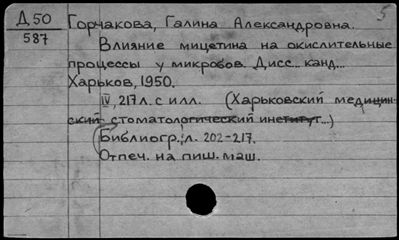 Д 50
587
5
Горчакова, Галина Александровна.
Влияние мицетина на окислительные
процессы у микробов. Дисс... канд...
Харьков, 1950.
IV, 217 л. с илл. (Харьковский медицин-
ский стоматологический институт...)
Библиогр.: л. 202-217.
Отпеч. на пиш. маш.